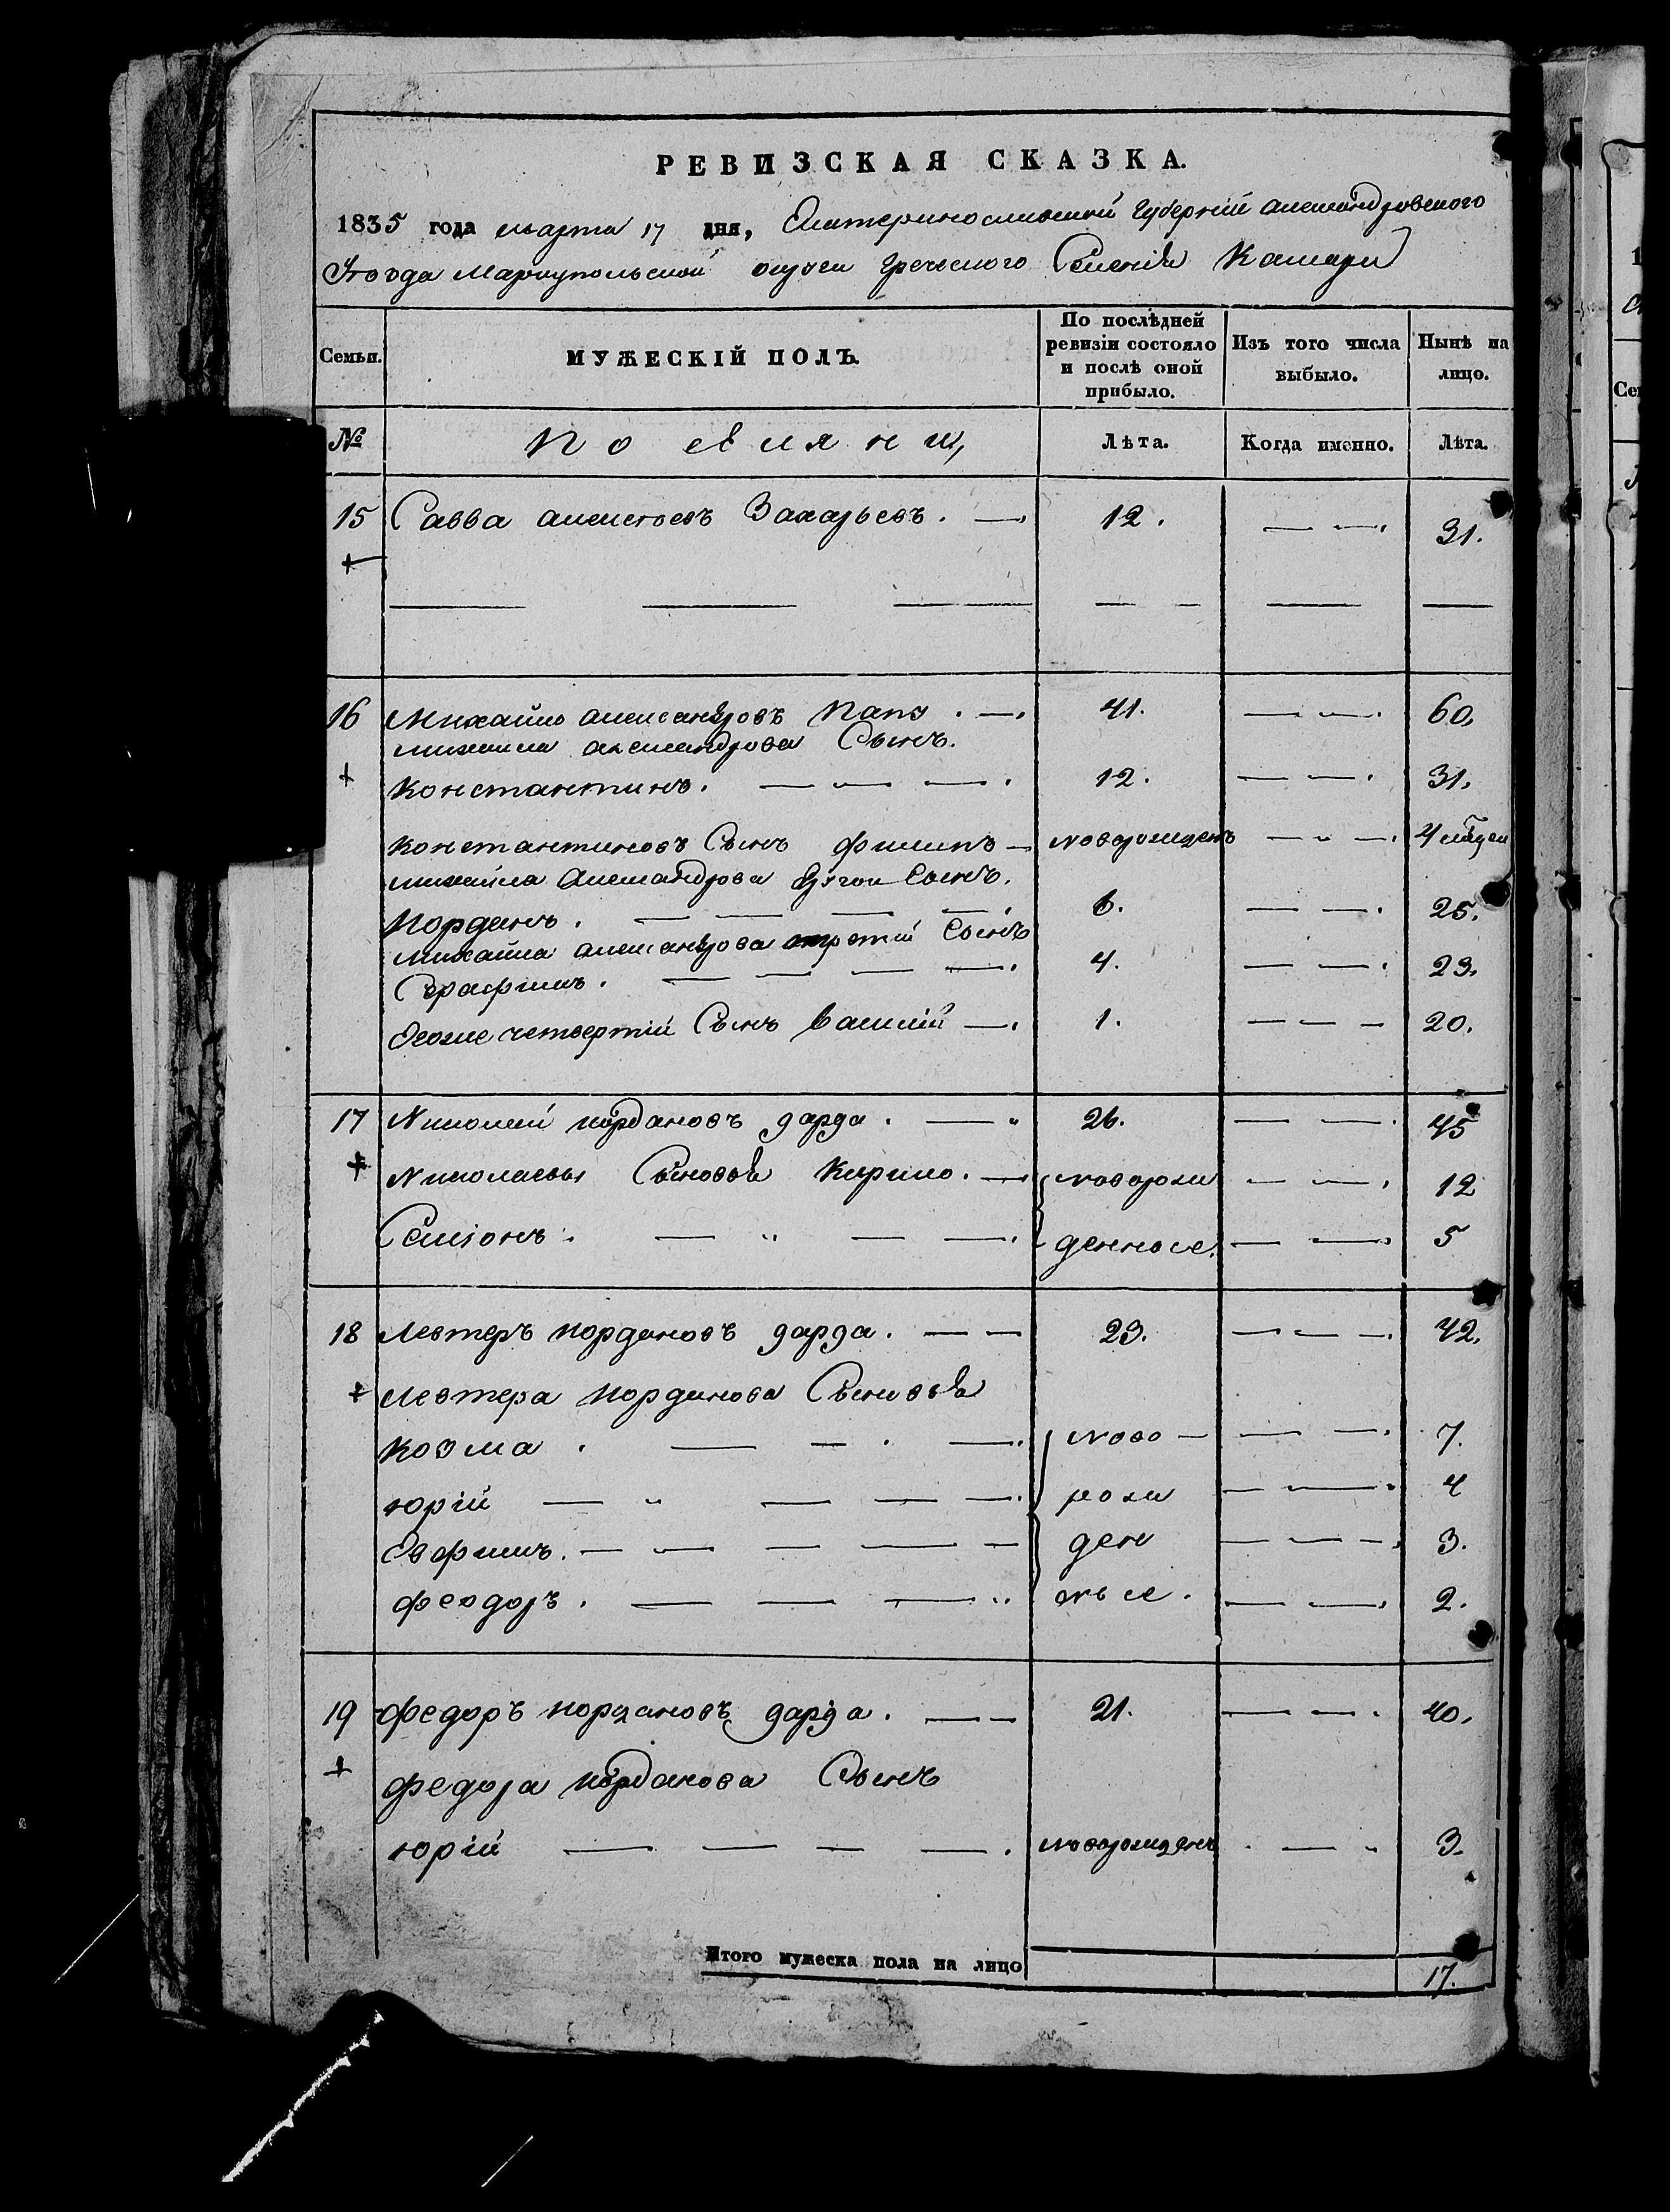 РЕВИЗСКАЯ СКАЗКА.
1835 года марта 17 дня, Екатеринославской Губерніи александровского
Уѣзда Мариупольской округи Греческого Селенія Камари
Семьи. МУЖЕСКІЙ ПОЛЪ. По послѣдней ревизіи состояло и послѣ оной прибыло. Изъ того числа выбыло. Нынѣ на лицо.
№ Поселяни Лѣта. Когда именно. Лѣта.
15 Савва алексѣевъ Захарьевъ. 12. 31.
16 Михайло александровъ Папу. 41. 60.
михаила александрова Сынъ.
Константинъ. 12. 31.
Константиновъ Сынъ филипъ новорожденъ 4 мѣсяцъ
михайла Александрова другои Сынъ.
Иорданъ. 6. 25.
михайла александрова третій Сынъ
Серафимъ. 4. 23.
Егоже четвертій Сынъ Василій 1. 20.
17 Николай иордановъ дарда. 26. 45
Николаевы Сыновья Кирило. новорож 12
Семіонъ. денные. 5
18 Левтеръ Иордановъ дарда. 23. 42.
Левтера Иорданова Сыновья
Козма. ново 7.
юрій рож 4
Евфимъ. ден 3.
феодоръ. ные. 2.
19 федоръ Иордановъ дарда. 21. 40.
федора иорданова Сынъ
юрій новорожденъ 3.
Итого мужеска пола на лицо 17.